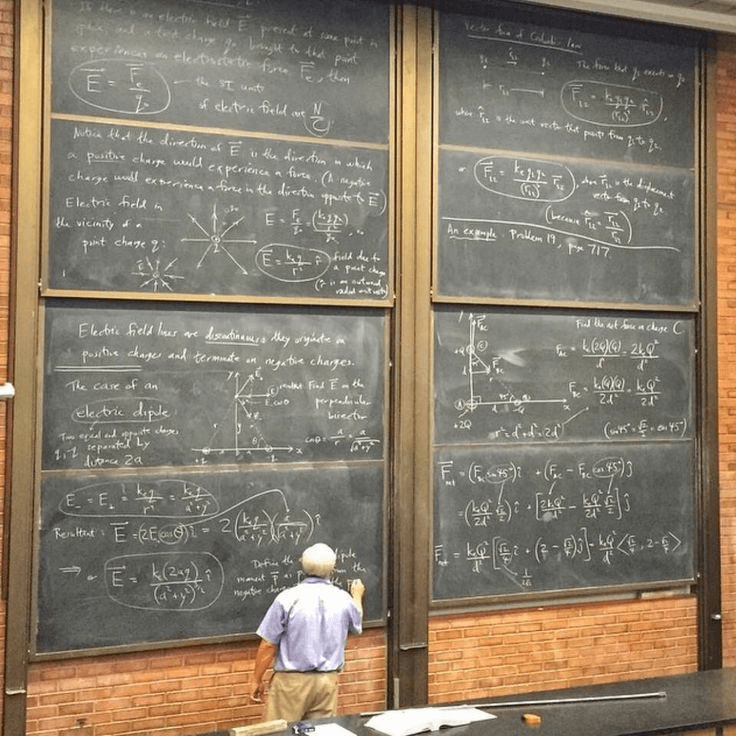 If there is an electric field E⃗ present at some point in
space, and a test charge q₀ brought to that point
experiences an electrostatic force F⃗e, then
E⃗ = F⃗e/q₀ — the SI units
of electric field are N/C
Notice that the direction of E⃗ is the direction in which
a positive charge would experience a force. (A negative
charge would experience a force in the direction opposite to E⃗)
Electric field in
the vicinity of a
point charge q:
E = Fe/q₀ = (ke q q₀/r²)/q₀
E⃗ = ke q/r² r̂
field due to
a point charge
(r̂ is an outward
radial unit vector)
Electric field lines are discontinuous; they originate on
positive charges and terminate on negative charges.
The case of an
electric dipole
Two equal and opposite charges
q, -q separated by
distance 2a
Find E⃗ on the
perpendicular
bisector
cosθ = a/r = a/√(a²+y²)
E₋ = E₊ = ke q/r² = ke q/(a²+y²)
Resultant: E⃗ = (2E₊ cosθ) î = 2(ke q/(a²+y²))(a/√(a²+y²)) î
⇒ or E⃗ = ke(2aq)/(a²+y²)^3/2 î
Define the dipole
moment p⃗ as from the
negative charge the
Vector form of Coulomb's law
q₁ r̂₁₂ q₂
The force that q₁ exerts on q₂
F⃗₁₂ = ke q₁q₂/(r₁₂)² r̂₁₂,
where r̂₁₂ is the unit vector that points from q₁ to q₂.
or F⃗₁₂ = ke q₁q₂/(r₁₂)³ r⃗₁₂, where r⃗₁₂ is the displacement
vector from q₁ to q₂
(because r̂₁₂ = r⃗₁₂/r₁₂)
An example Problem 19, page 717.
Find the net force on charge C
F_AC = ke(2Q)(Q)/d² = 2keQ²/d²
F_BC = ke(Q)(Q)/2d² = keQ²/2d²
+2Q
r² = d²+d² = 2d²
(sin45° = √2/2 = cos45°)
F⃗net = (F_BC sin45°) î + (F_AC - F_BC cos45°) ĵ
= (keQ²/2d² √2/2) î + [2keQ²/d² - keQ²/2d² √2/2] ĵ
F⃗net = keQ²/d² [√2/4 î + (2 - √2/4) ĵ] = keQ²/d² <√2/4, 2-√2/4>